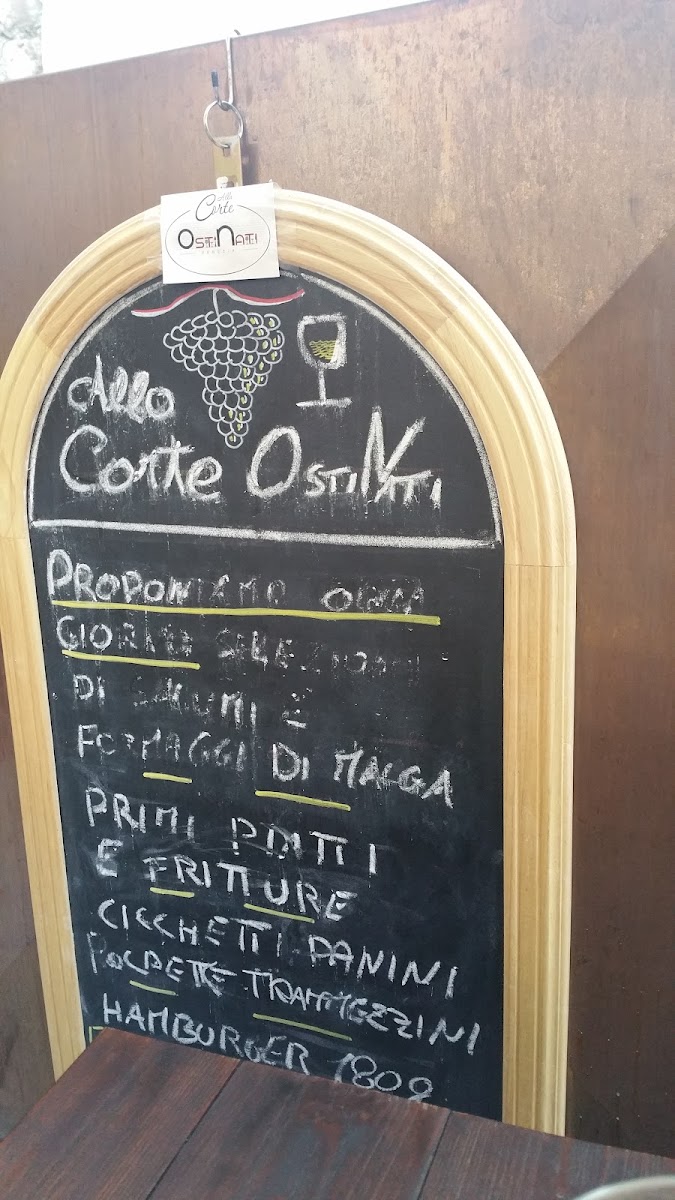 Alla
Corte
OSTINATI
Alla
Corte OSTINATI
PROPONIAMO OGNI
GIORNO SELEZIONI
DI SALUMI E
FORMAGGI DI MALGA
PRIMI PIATTI
E FRITTURE
CICCHETTI PANINI
POLPETTE TRAMMEZZINI
HAMBURGER 180g